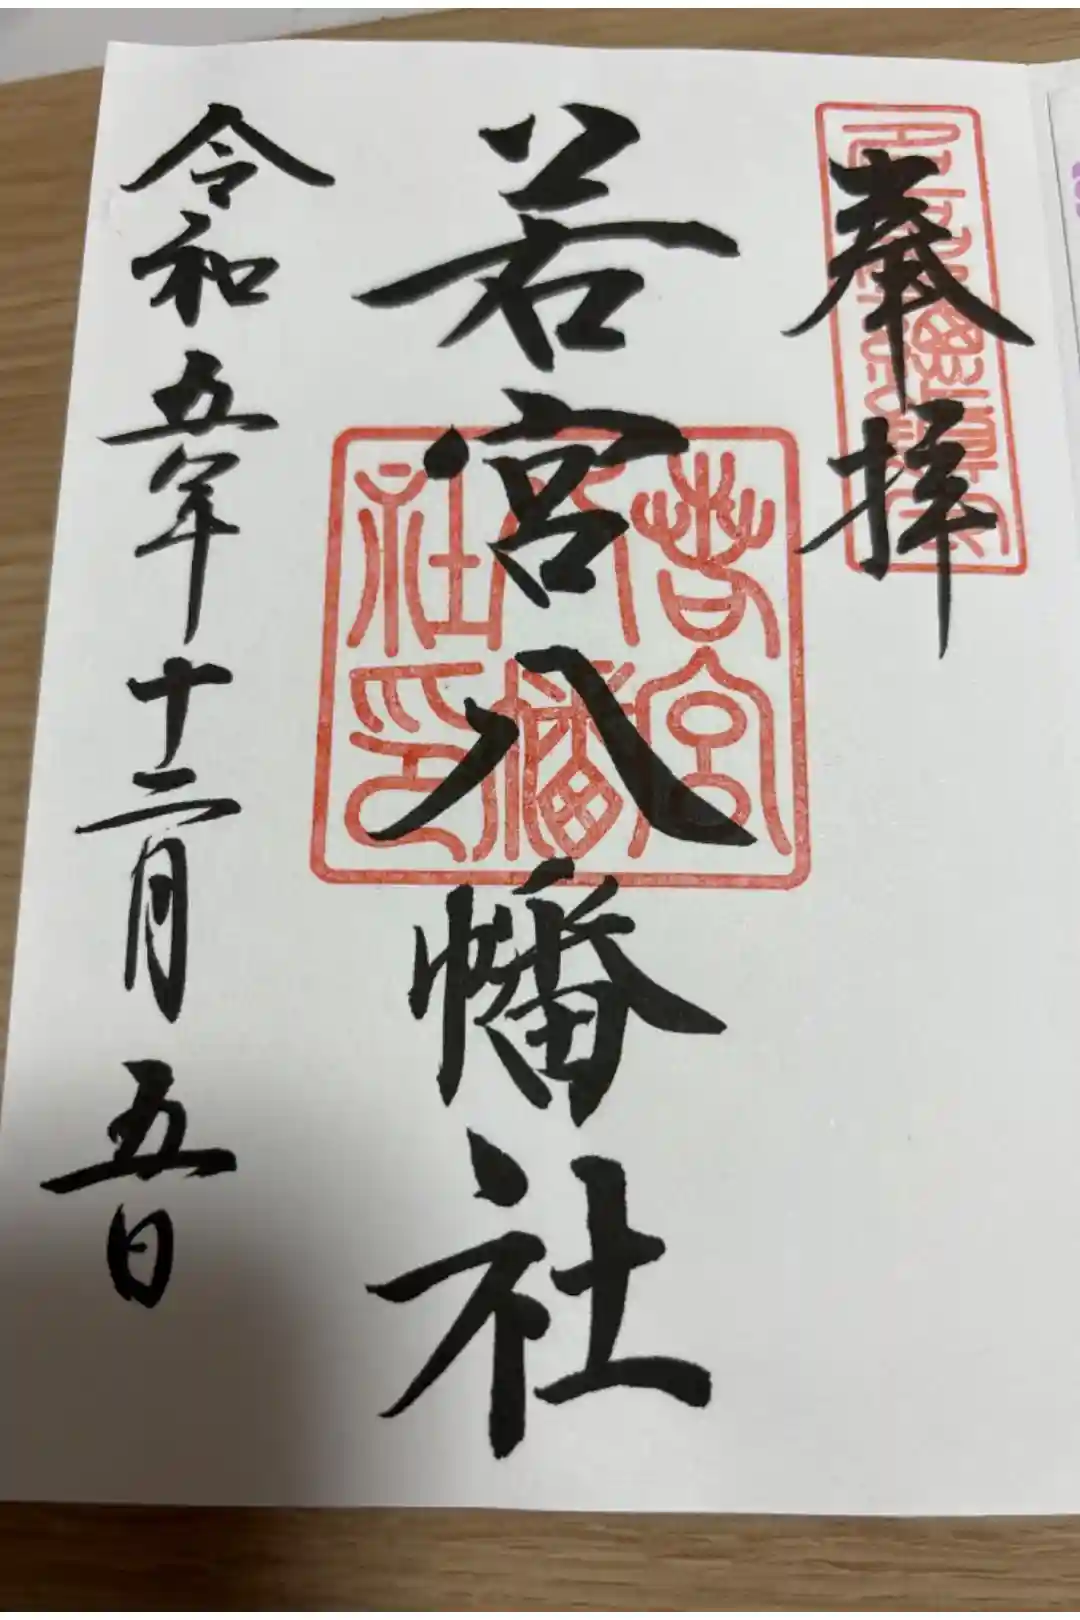 奉拝
若宮八幡社
若宮八幡社印
令和五年十二月五日